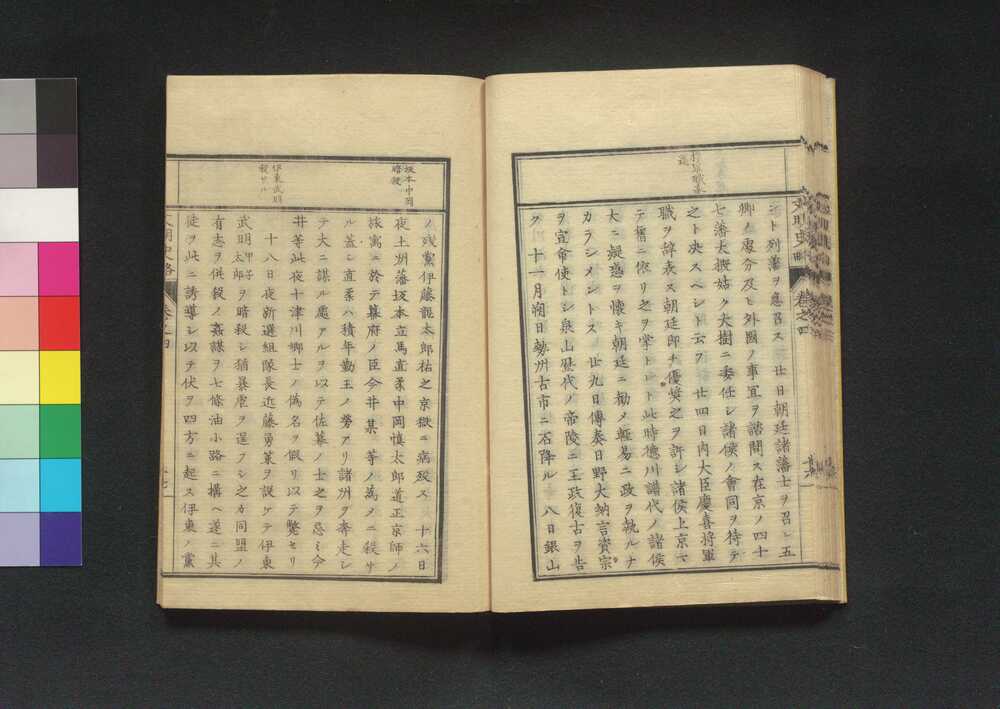 ント列藩ヲ急召ス 廿日朝廷諸藩士ヲ召シ五
卿ノ處分及ヒ外國ノ事宜ヲ諮問ス在京ノ四十
七藩大概姑ク大樹ニ委任シ諸侯ノ會同ヲ待テ
之ト决スベシト云フ 廿四日内大臣慶喜將軍
職ヲ辭表ス朝廷即チ優奨之ヲ許シ諸侯上京マ
テ舊ニ依リ之ヲ掌トシト此時德川譜代ノ諸侯
大ニ疑惑ヲ懷キ朝廷ニ勸メ輕易ニ政ヲ執ルナ
カラシメントス 廿九日傳奏日野大納言資宗
ヲ宣命使トシ泉山歴代ノ帝陵ニ王政復古ヲ告
ク 十一月朔日勢州古市ニ石降ル 八日銀山
文明史略
卷之四
坂本中岡
暗殺
ノ残黨伊藤龍太郎祐之京獄ニ病殁ス 十六日
夜土洲藩坂本立馬直柔中岡慎太郎道正京師ノ
旅寓ニ於テ幕府ノ臣今井某等ノ爲メニ殺サ
ル蓋シ直柔ハ積年勤王ノ勞アリ諸洲ヲ奔走シ
テ大ニ謀ル處アルヲ以テ佐幕ノ士之ヲ忌ミ今
井等此夜十津川郷士ノ偽名ヲ假リ以テ斃セリ
伊東武明
殺サル
十八日夜新選組隊長近藤勇策ヲ設ケテ伊東
武明甲子太郎ヲ暗殺シ猶暴虐ヲ逞フシ之カ同盟ノ
有志ヲ併殺ノ姦謀ヲ七條油小路ニ構ヘ遂ニ其
徒ヲ此ニ誘導シ以テ伏ヲ四方ニ起ス伊東ノ黨
文明史略
卷之四